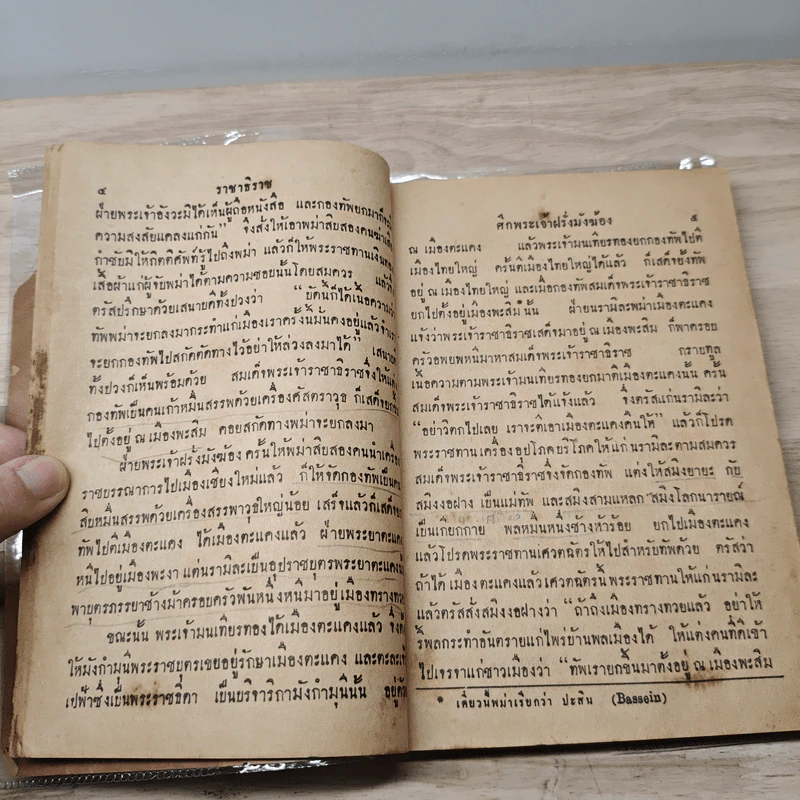 ๔ ราชาธิราช
ฝ่ายพระเจ้าอังวะมิได้เห็นผู้ถือหนังสือ และกองทัพยกมาก็
ความสงสัยแคลงแก่กัน” จึงสั่งให้เอาพม่าสิบสองคนฆ่าเสีย
กำชับมิให้กิตติศัพท์รู้ไปถึงพม่า แล้วก็ให้พระราชทานเงินทอง
เสื้อผ้าแก่ผู้จับพม่าได้ตามความชอบนั้นโดยสมควร แล้วก็
ตรัสปรึกษาด้วยเสนาบดีทั้งปวงว่า “บัดนี้ก็ได้เนื้อความว่า
ทัพพม่าจะยกลงมากระทำแก่เมืองเราครั้งนี้มั่นคงอยู่แล้ว
จะยกกองทัพไปสกัดตัดทางไว้อย่าให้ล่วงลงมาได้” เสนาบดี
ทั้งปวงก็เห็นพร้อมด้วย สมเด็จพระเจ้าราชาธิราชจึงให้
กองทัพเป็นคนเก้าหมื่นสรรพด้วยเครื่องศัสตราวุธ ก็เสด็จยก
ไปตั้งอยู่ ณ เมืองพะสิม คอยสกัดทางพม่าจะยกลงมา
ฝ่ายพระเจ้าฝรั่งมังฆ้อง ครั้นให้พม่าสิบสองคนนำเครื่อง
ราชบรรณาการไปเมืองเชียงใหม่แล้ว ก็ให้จัดกองทัพเป็นคน
สิบหมื่นสรรพด้วยเครื่องสรรพาวุธใหญ่น้อย เสร็จแล้วก็เสด็จยก
ทัพไปตีเมืองตะแคง ได้เมืองตะแคงแล้ว ฝ่ายพระยาตะแคง
หนีไปอยู่เมืองพะงา แต่นรามิละเป็นอุปราชบุตรพระยาตะแคงนั้น
พาบุตรภรรยาช้างม้าครอบครัวพันหนึ่งหนีมาอยู่เมืองทรางทวย
ขณะนั้น พระเจ้ามนเทียรทองได้เมืองตะแคงแล้ว จึงตั้ง
ให้มังกำมุนีพระราชบุตรเขยอยู่รักษาเมืองตะแคง และตะละ
เปฟ้าซึ่งเป็นพระราชธิดา เป็นบริจาริกามังกำมุนีนั้น อยู่ด้วย
ศึกพระเจ้าฝรั่งมังฆ้อง ๕
ณ เมืองตะแคง แล้วพระเจ้ามนเทียรทองยกกองทัพไปตี
เมืองไทยใหญ่ ครั้นตีเมืองไทยใหญ่ได้แล้ว ก็เสด็จยั้งทัพ
อยู่ ณ เมืองไทยใหญ่ และเมื่อกองทัพสมเด็จพระเจ้าราชาธิราช
ยกไปตั้งอยู่เมืองพะสิม* นั้น ฝ่ายนรามิละพม่าเมืองตะแคง
แจ้งว่าพระเจ้าราชาธิราชเสด็จมาอยู่ ณ เมืองพะสิม ก็พาครอบ
ครัวอพยพหนีมาหาสมเด็จพระเจ้าราชาธิราช กราบทูล
เนื้อความตามพระเจ้ามนเทียรทองยกมาตีเมืองตะแคงนั้น ครั้น
สมเด็จพระเจ้าราชาธิราชได้แจ้งแล้ว จึงตรัสแก่นรามิละว่า
“อย่าวิตกไปเลย เราจะตีเอาเมืองตะแคงคืนให้” แล้วก็โปรด
พระราชทานเครื่องอุปโภคบริโภคให้แก่นรามิละตามสมควร
สมเด็จพระเจ้าราชาธิราชจึงจัดกองทัพ แต่งให้สมิงยายะ กับ
สมิงงอฝาง เป็นแม่ทัพ และสมิงสามแหลก สมิงโลกนารายณ์
เป็นเกียกกาย พลหมื่นหนึ่งช้างห้าร้อย ยกไปเมืองตะแคง
แล้วโปรดพระราชทานเศวตฉัตรให้ไปสำหรับทัพด้วย ตรัสว่า
ถ้าได้เมืองตะแคงแล้วเศวตฉัตรนี้พระราชทานให้แก่นรามิละ
แล้วตรัสสั่งสมิงงอฝางว่า “ถ้าถึงเมืองทรางทวยแล้ว อย่าให้
รี้พลกระทำอันตรายแก่ไพร่บ้านพลเมืองได้ ให้แต่งคนที่ดีเข้า
ไปเจรจาแก่ชาวเมืองว่า “ทัพเรายกขึ้นมาตั้งอยู่ ณ เมืองพะสิม
* เดี๋ยวนี้พม่าเรียกว่า ปะสิน (Bassein)